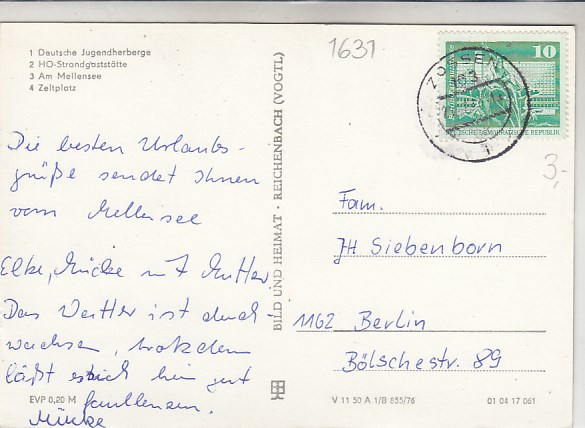 1 Deutsche Jugendherberge
2 HO-Strandgaststätte
3 Am Mellensee
4 Zeltplatz
Die besten Urlaubs-
grüße sendet Ihnen
vom Mellensee
Elke, Mücke mit Mutter.
Das Wetter ist durch-
wachsen, trotzdem
läßt es sich hier gut
faullenzen.
Mücke
EVP 0,20 M
BILD UND HEIMAT · REICHENBACH (VOGTL)
1631
10
DEUTSCHE DEMOKRATISCHE REPUBLIK
ZOSSEN
3,-
Fam.
Siebenborn
1162 Berlin
Bölschestr. 89
V 11 50 A 1/B 855/76
01 04 17 061